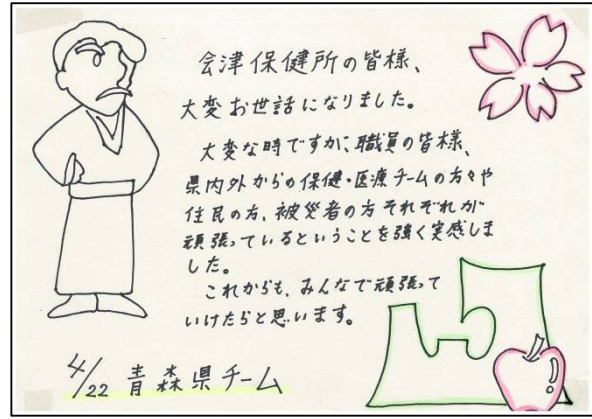 会津保健所の皆様、
大変お世話になりました。
大変な時ですが、職員の皆様、
県内外からの保健・医療チームの方々や
住民の方、被災者の方それぞれが
頑張っているということを強く実感しま
した。
これからも、みんなで頑張って
いけたらと思います。
4/22 青森県チーム